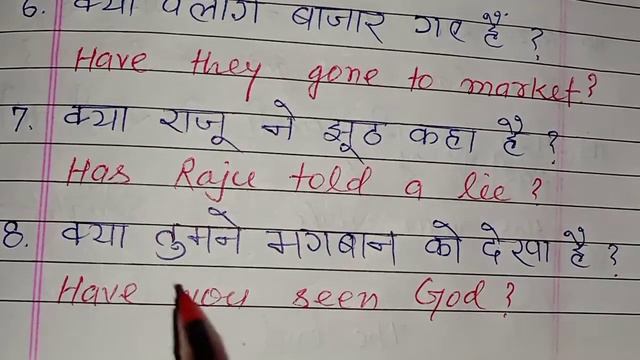 6. क्या वे लोग बाजार गए हैं ?
Have they gone to market?
7. क्या राजू ने झूठ कहा है ?
Has Raju told a lie ?
8. क्या तुमने भगवान को देखा है ?
Have you seen God ?